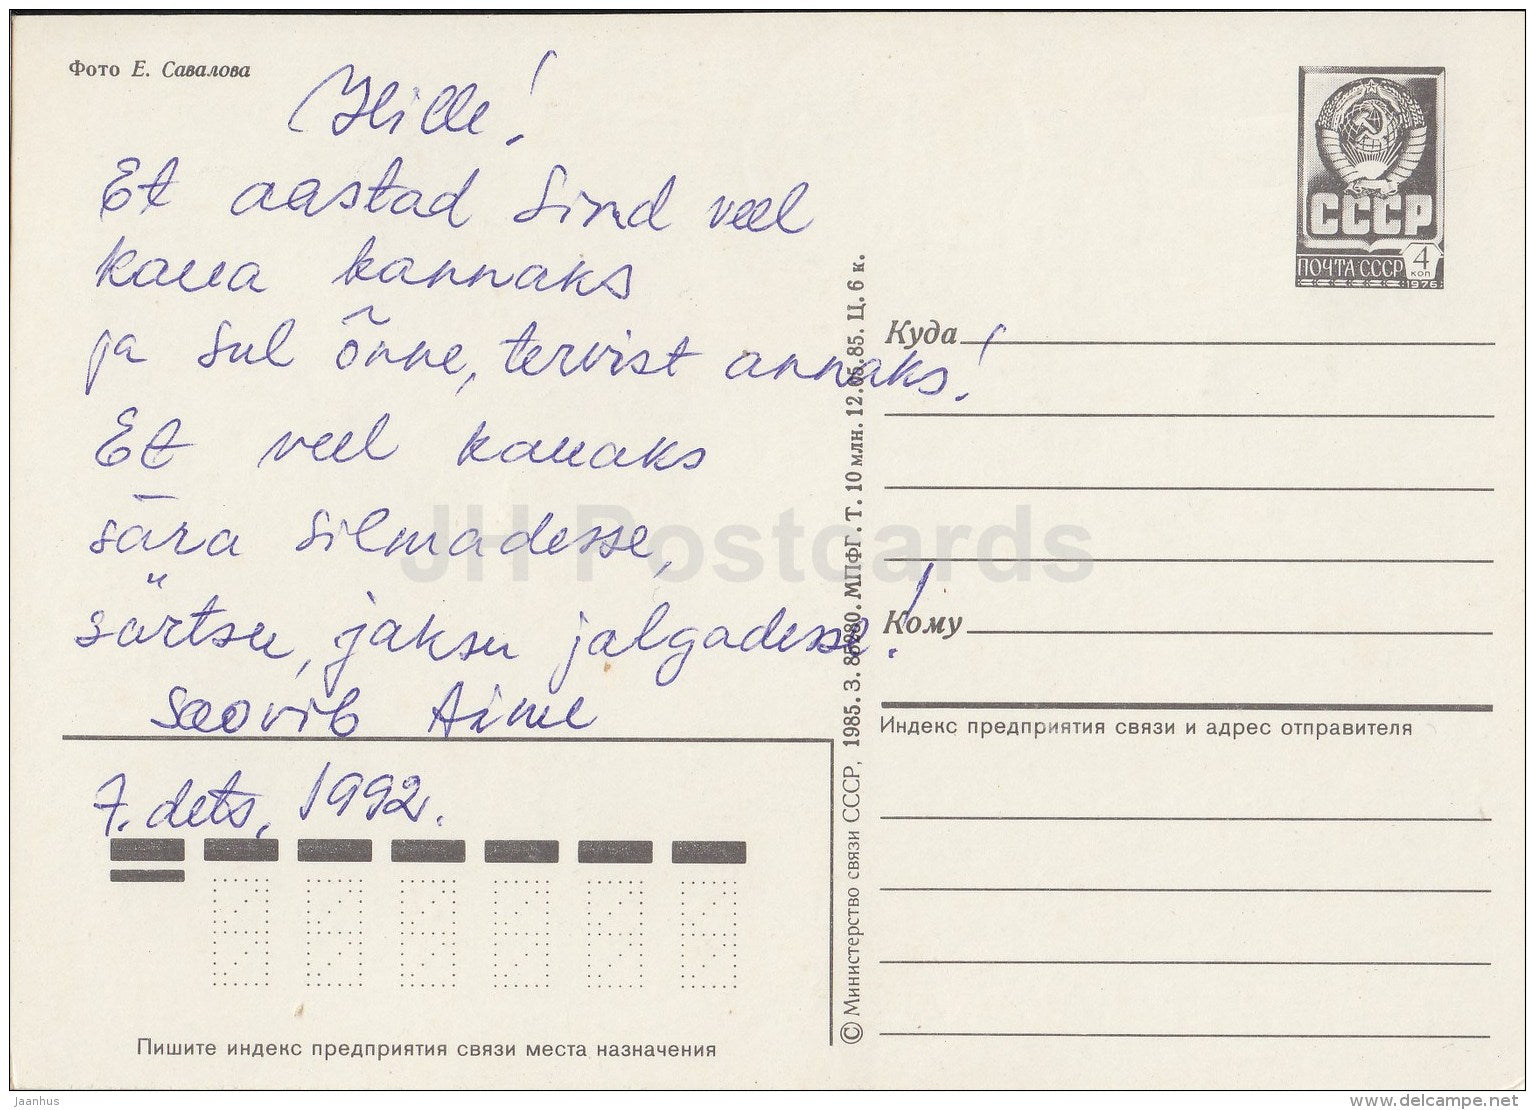 Фото Е. Савалова
Hille!
Et aastad Sind veel
kaua kannaks
ja Sul õnne, tervist annaks!
Et veel kauaks
sära silmadesse,
särtsu, jaksu jalgadesse!
Soovib Aime
7. dets. 1992.
СССР
ПОЧТА СССР 4 коп
1976
Куда
Кому
Индекс предприятия связи и адрес отправителя
© Министерство связи СССР, 1985. З. 85280. МПФГ. Т. 10 млн. 12.05.85. Ц. 6 к.
Пишите индекс предприятия связи места назначения
JH Postcards
jaanhus
www.delcampe.net